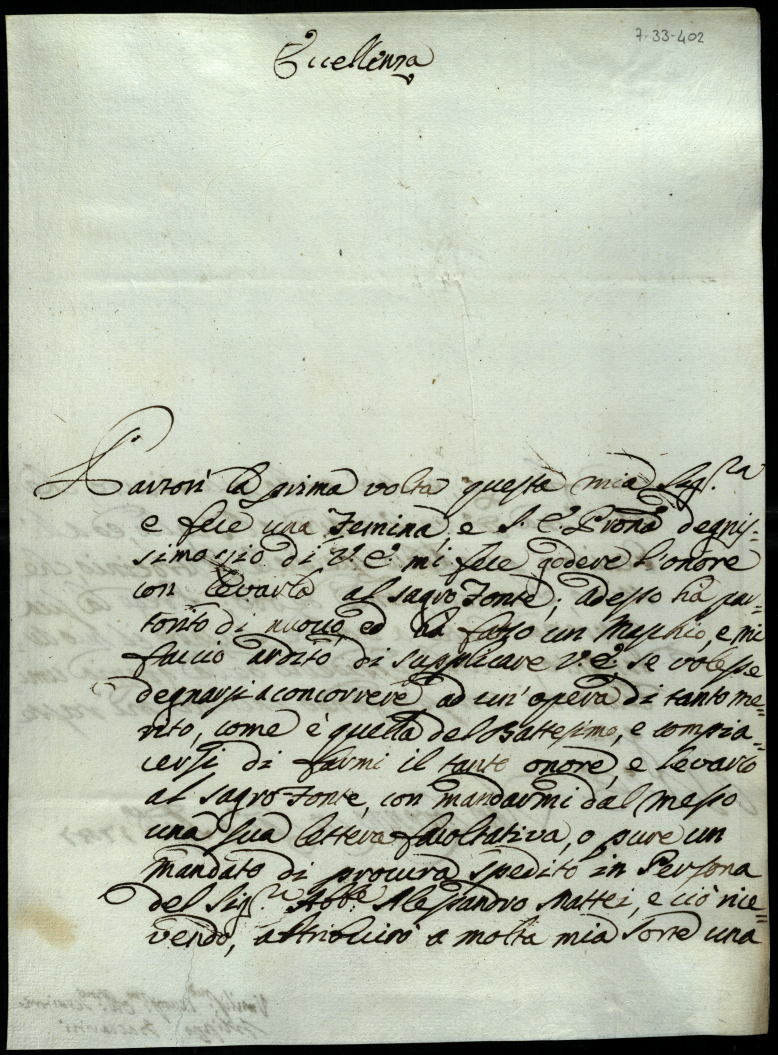 7-33-402
Eccellenza
Partorì la prima volta questa mia Sig.ra
e fece una Femina, e S. E. Prona degnis=
simo zio di V. E. mi fece godere l'onore
con levarla al sagro Fonte; adesso ha par=
torito di nuovo, ed ha fatto un Maschio, e mi
faccio ardito di supplicare V. E. se volesse
degnarsi a concorrere ad un'opera di tanto me=
rito, come è quella del Battesimo, e compia=
cersi di farmi il tanto onore, e levarlo
al sagro Fonte, con mandarmi dal messo
una sua lettera facoltativa, o pure un
mandato di procura spedito in Persona
del Sig.r Abbe Alessandro Mattei, e ciò rice=
vendo, attribuirò a molta mia sorte una